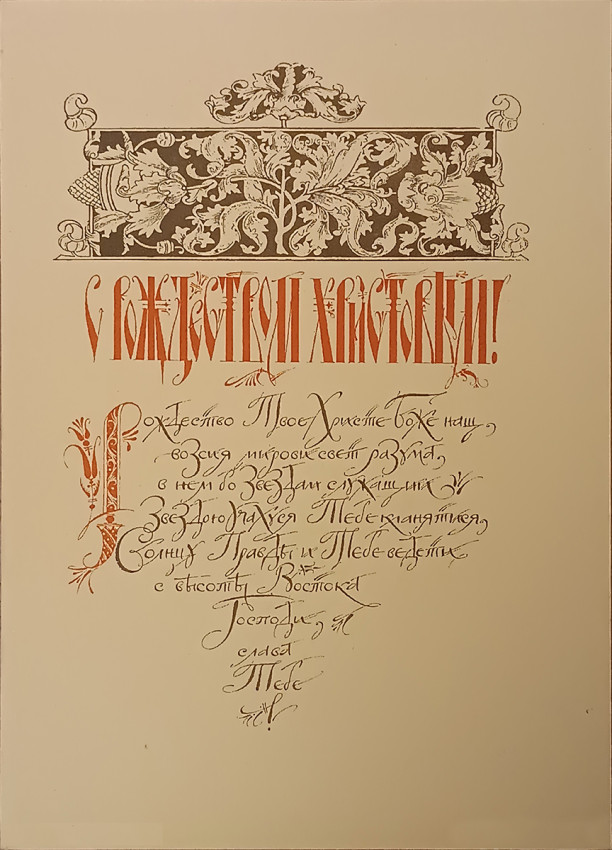 С РОЖДЕСТВОМ ХРИСТОВЫМ!
Рождество Твое Христе Боже наш,
возсия мирови свет разума,
в нем бо звездам служащии
Звездою учахуся Тебе кланятися,
Солнцу Правды и Тебе ведети
с высоты Востока
Господи,
слава
Тебе
!